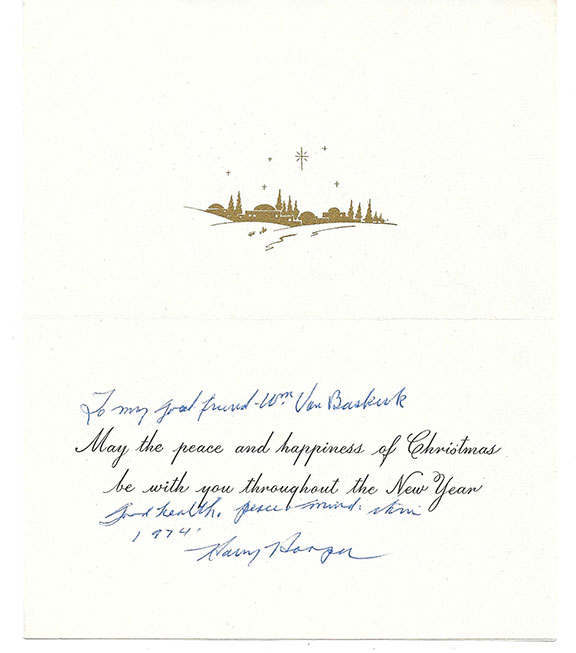 To my good friend - Wm Van Baskirk
May the peace and happiness of Christmas
be with you throughout the New Year
Good health, peace mind:
1974'
Harry Hooper